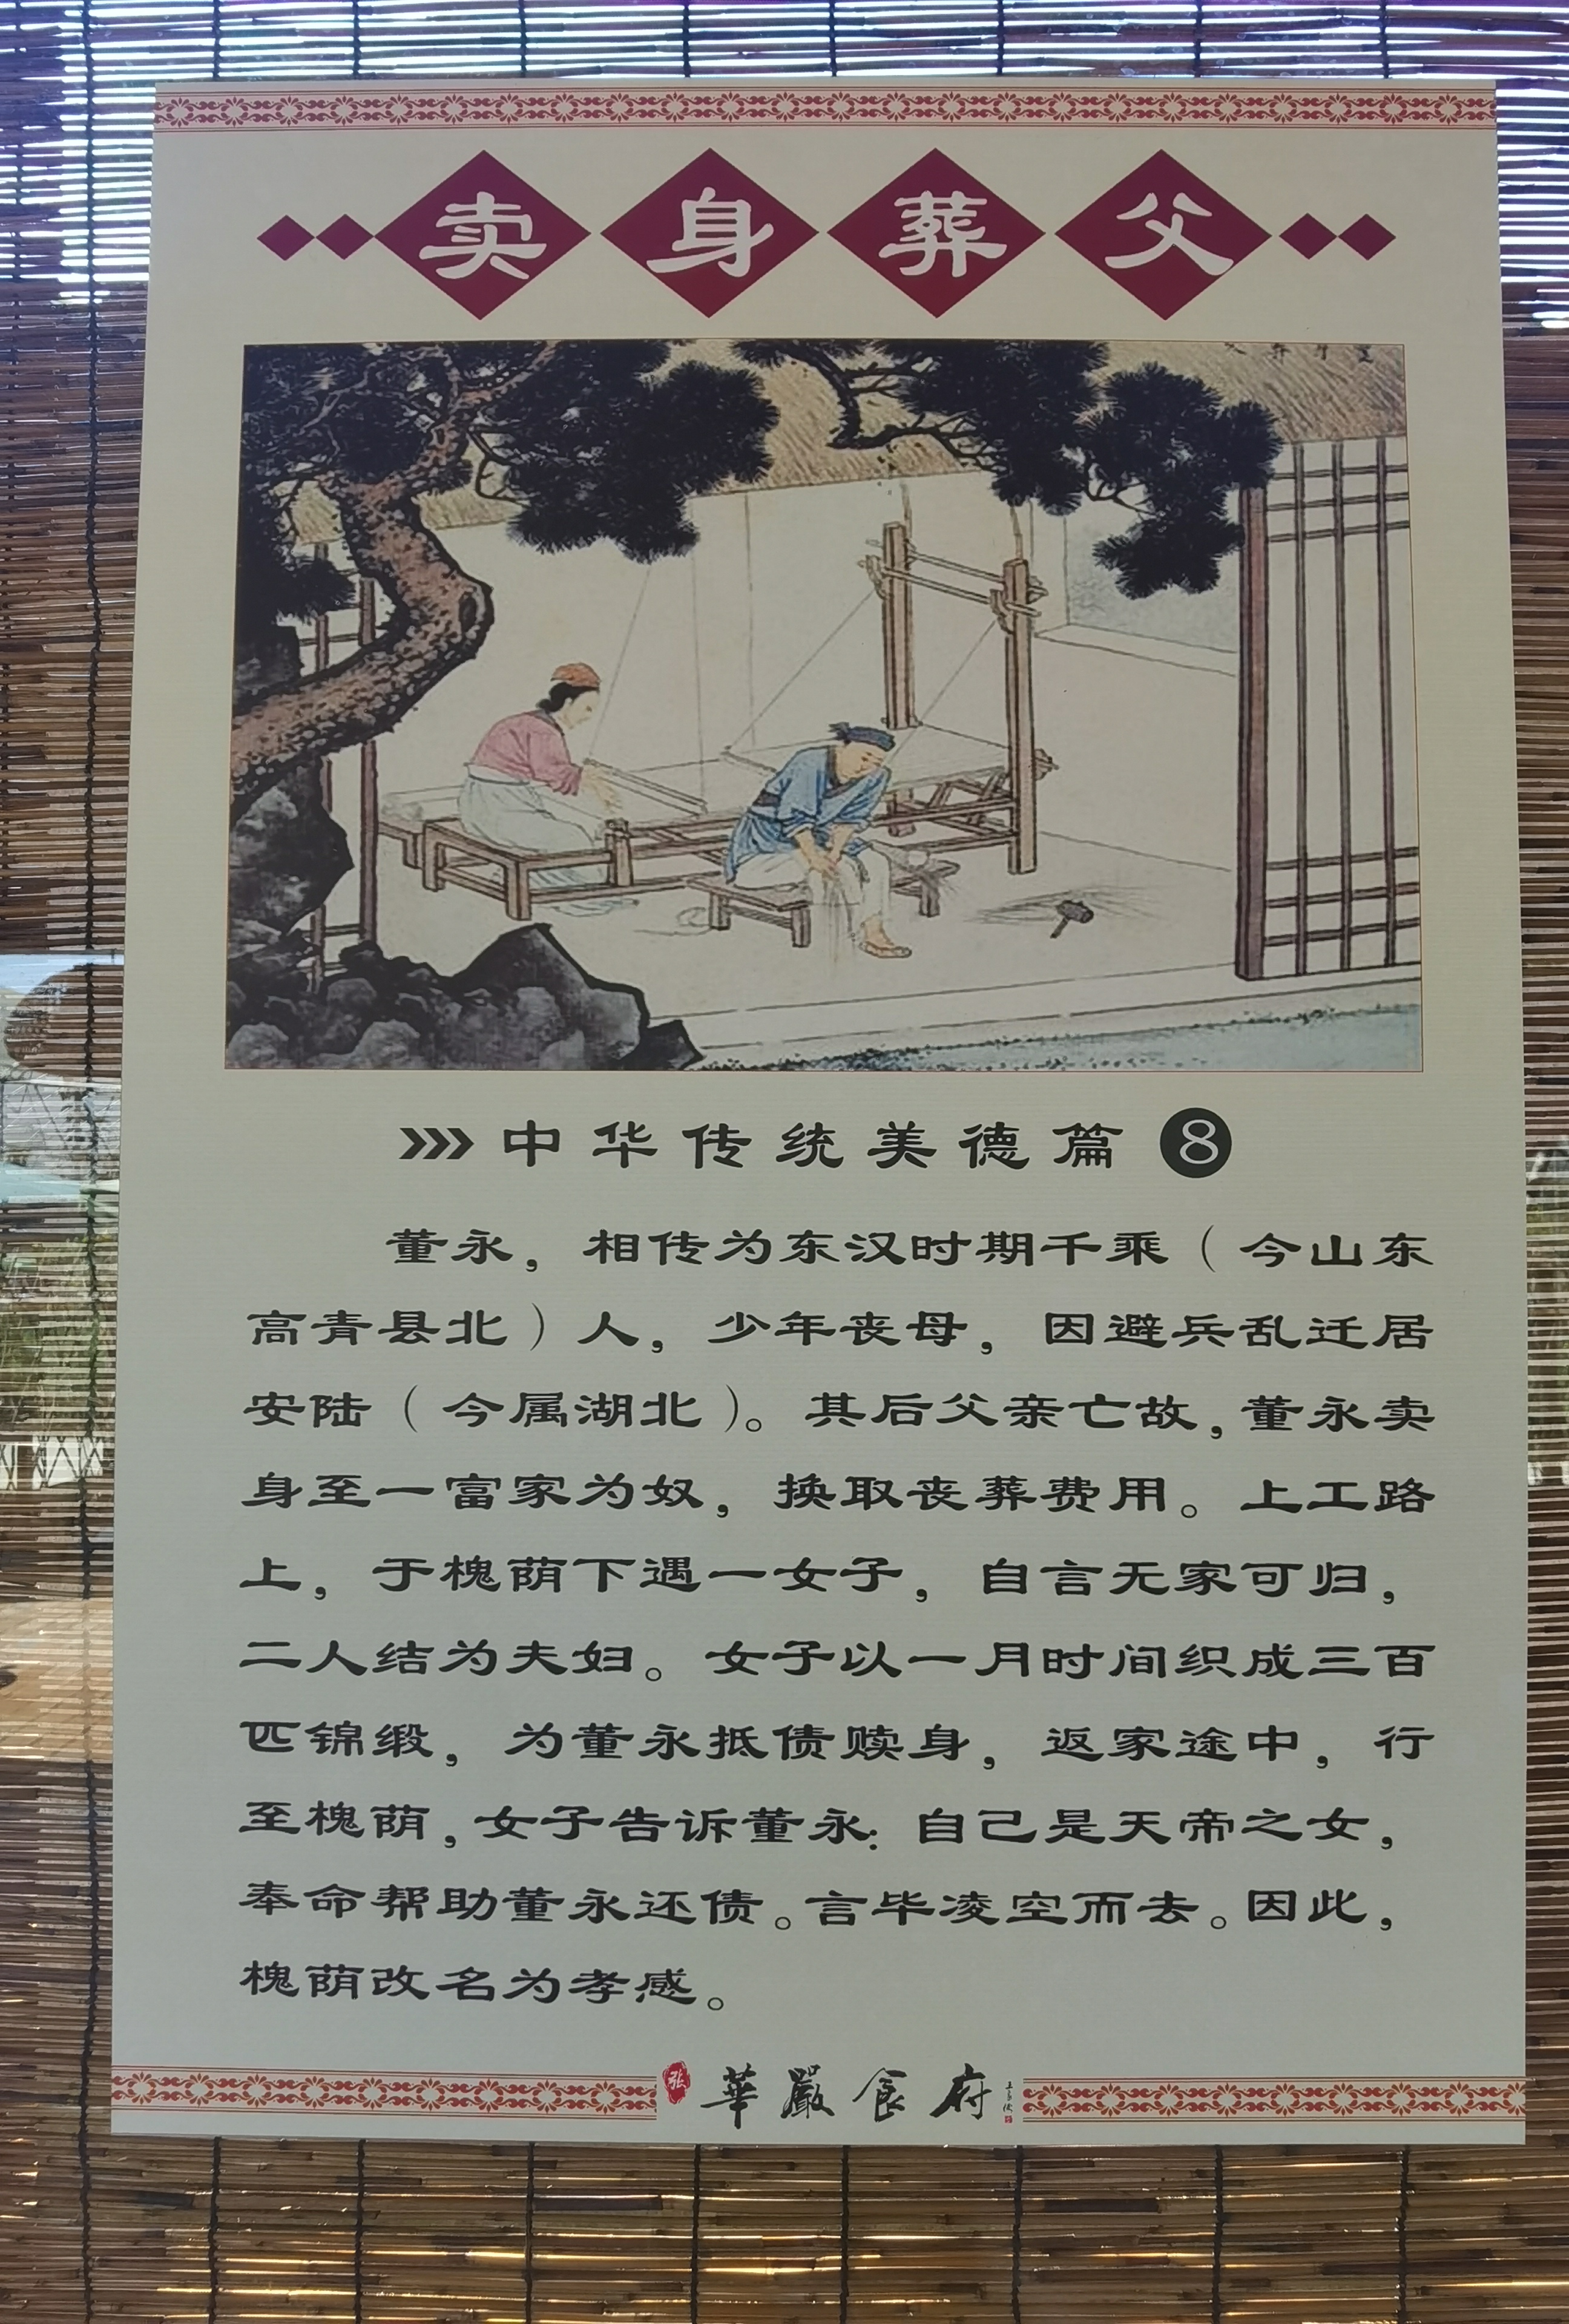 卖身葬父
中华传统美德篇 8
董永，相传为东汉时期千乘（今山东
高青县北）人，少年丧母，因避兵乱迁居
安陆（今属湖北）。其后父亲亡故，董永卖
身至一富家为奴，换取丧葬费用。上工路
上，于槐荫下遇一女子，自言无家可归，
二人结为夫妇。女子以一月时间织成三百
匹锦缎，为董永抵债赎身，返家途中，行
至槐荫，女子告诉董永：自己是天帝之女，
奉命帮助董永还债。言毕凌空而去。因此，
槐荫改名为孝感。
張 華嚴食府